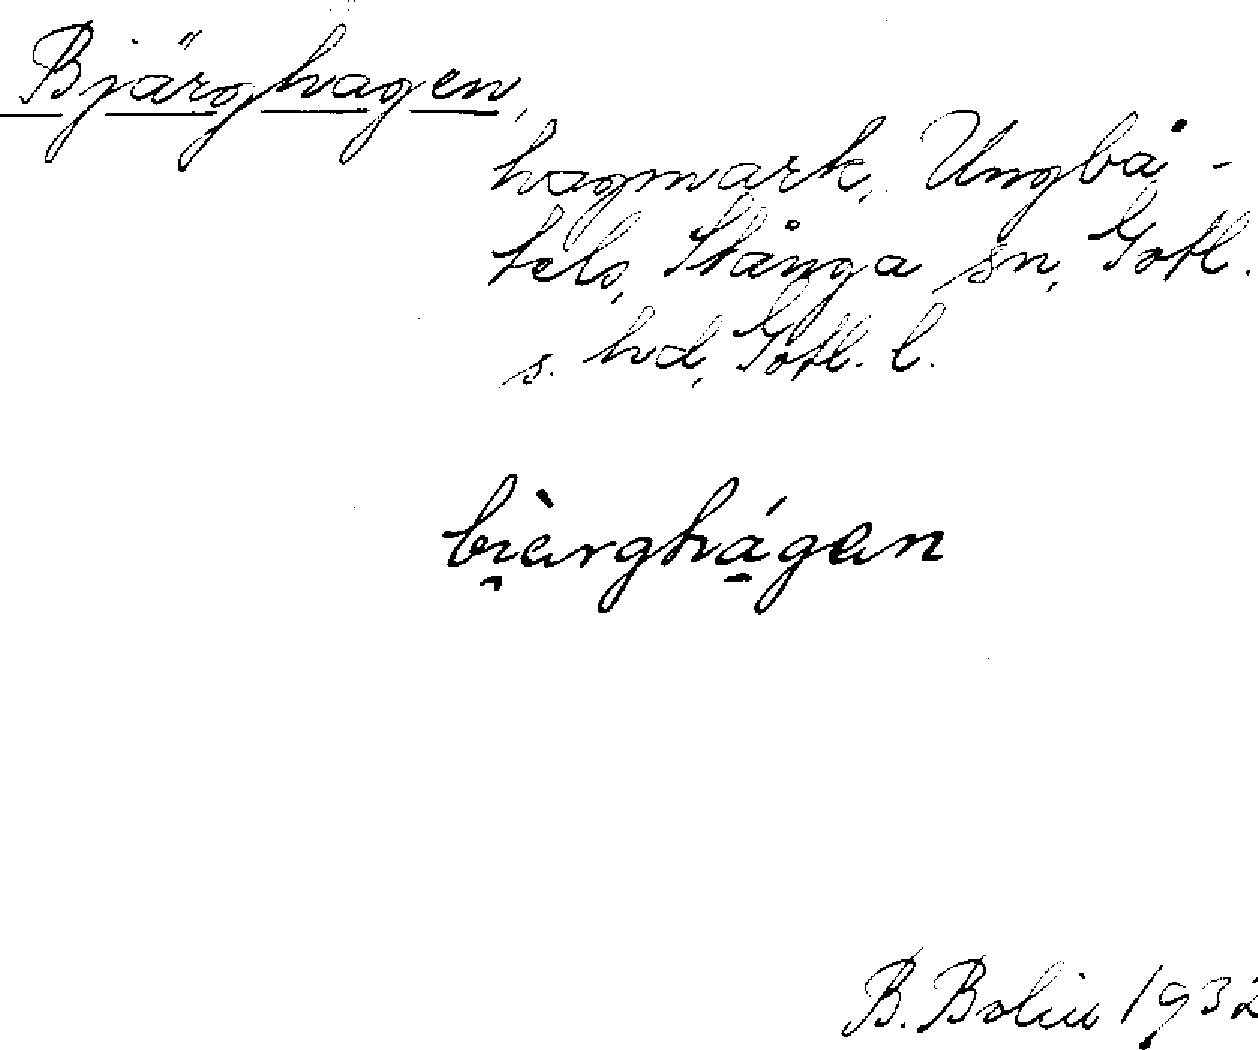 Bjärghagen,
hagmark, Ungbå-
tels, Stånga sn, Gotl.
s. hd, Gotl. l.
bi̯èrghá̱gan
B. Bolin 1932